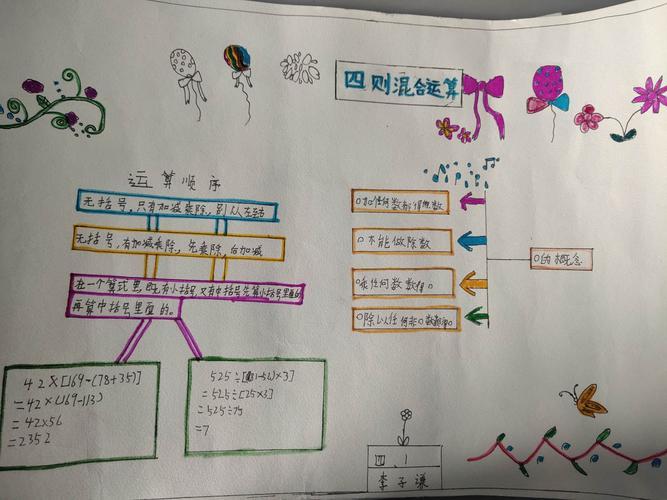 四则混合运算
运算顺序
无括号，只有加减乘除，别从左至右
无括号，有加减乘除，先乘除，后加减
在一个算式里，既有小括号，又有中括号先算小括号里面的
再算中括号里面的。
42×[169-(78+35)]
=42×(169-113)
=42×56
=2352
525÷[(81-56)×3]
=525÷[25×3]
=525÷75
=7
0加任何数都得原数
0不能做除数
0乘任何数都得0
0除以任何非0数都得0
0的概念
四、1
李子谦